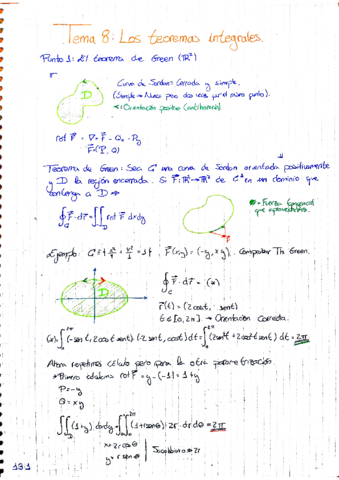 Tema 8: Los teoremas integrales.
Punto 1: El teorema de Green (ℝ²)
Curva de Jordan: Cerrada y simple.
(Simple → Nunca pasa dos veces por el mismo punto).
Orientación positiva (antihoraria)
D
rot F⃗ = ∇ · F⃗ = Qₓ - P_y
F⃗(P, Q)
Teorema de Green: Sea C una curva de Jordan orientada positivamente
y D la región encerrada. Si F⃗: ℝ² → ℝ² de C¹ en un dominio que
contenga a D ⇒
∮_C F⃗ · dr⃗ = ∬_D rot F⃗ dxdy
Fuerza tangencial
que
F
Ejemplo: C = { x²/4 + y²/1 = 1 }, F⃗(x,y) = (-y, xy). Comprobar Th Green.
D
∮_C F⃗ · dr⃗ = (*)
r⃗(t) = (2cost, sent)
t ∈ [0, 2π] → Orientación Correcta.
(*) = ∫₀^2π (-sent, 2cost sent) · (-2sent, cost) dt = ∫₀^2π (2sen²t + 2cos²t sent) dt = 2π
Ahora repetimos cálculo pero para la otra parametrización.
* Primero calculamos rot F⃗ = y - (-1) = 1 + y
P = -y
Q = xy
∬_D (1+y) dxdy = ∫₀¹ ∫₀^2π (1 + rsenθ) · 2r · dr dθ = 2π
x = 2r cosθ
y = r senθ
Jacobiano = 2r
191